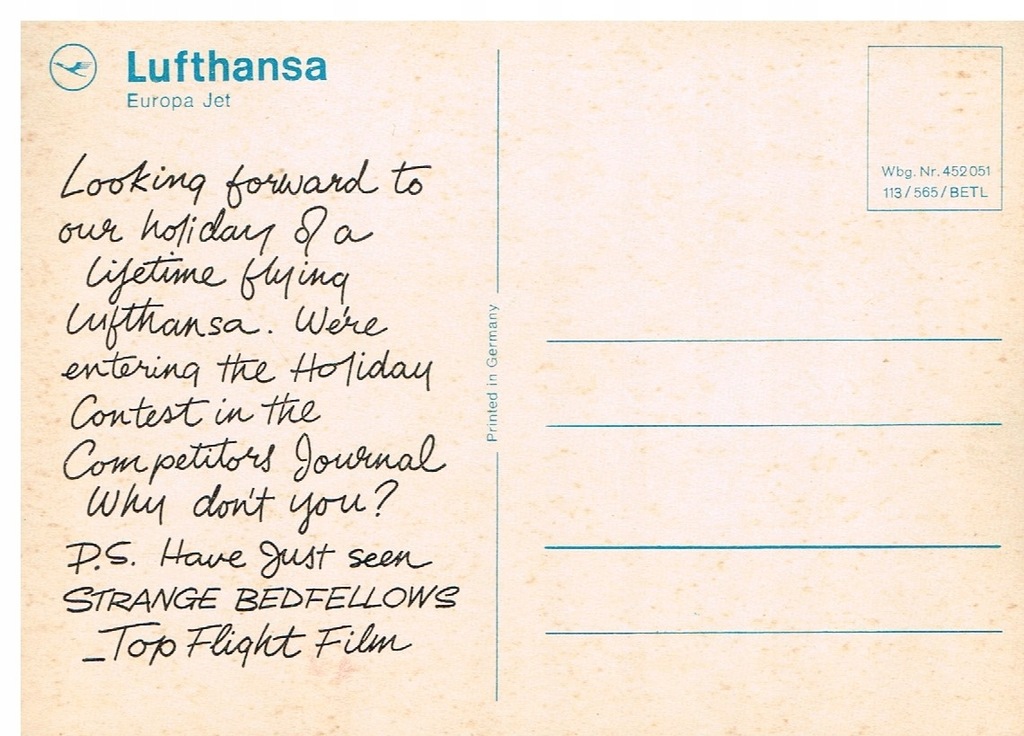 Lufthansa
Europa Jet
Looking forward to
our holiday of a
lifetime flying
Lufthansa. We're
entering the Holiday
Contest in the
Competitors Journal
Why don't you?
P.S. Have Just seen
STRANGE BEDFELLOWS
_Top Flight Film
Printed in Germany
Wbg. Nr. 452051
113/565/BETL